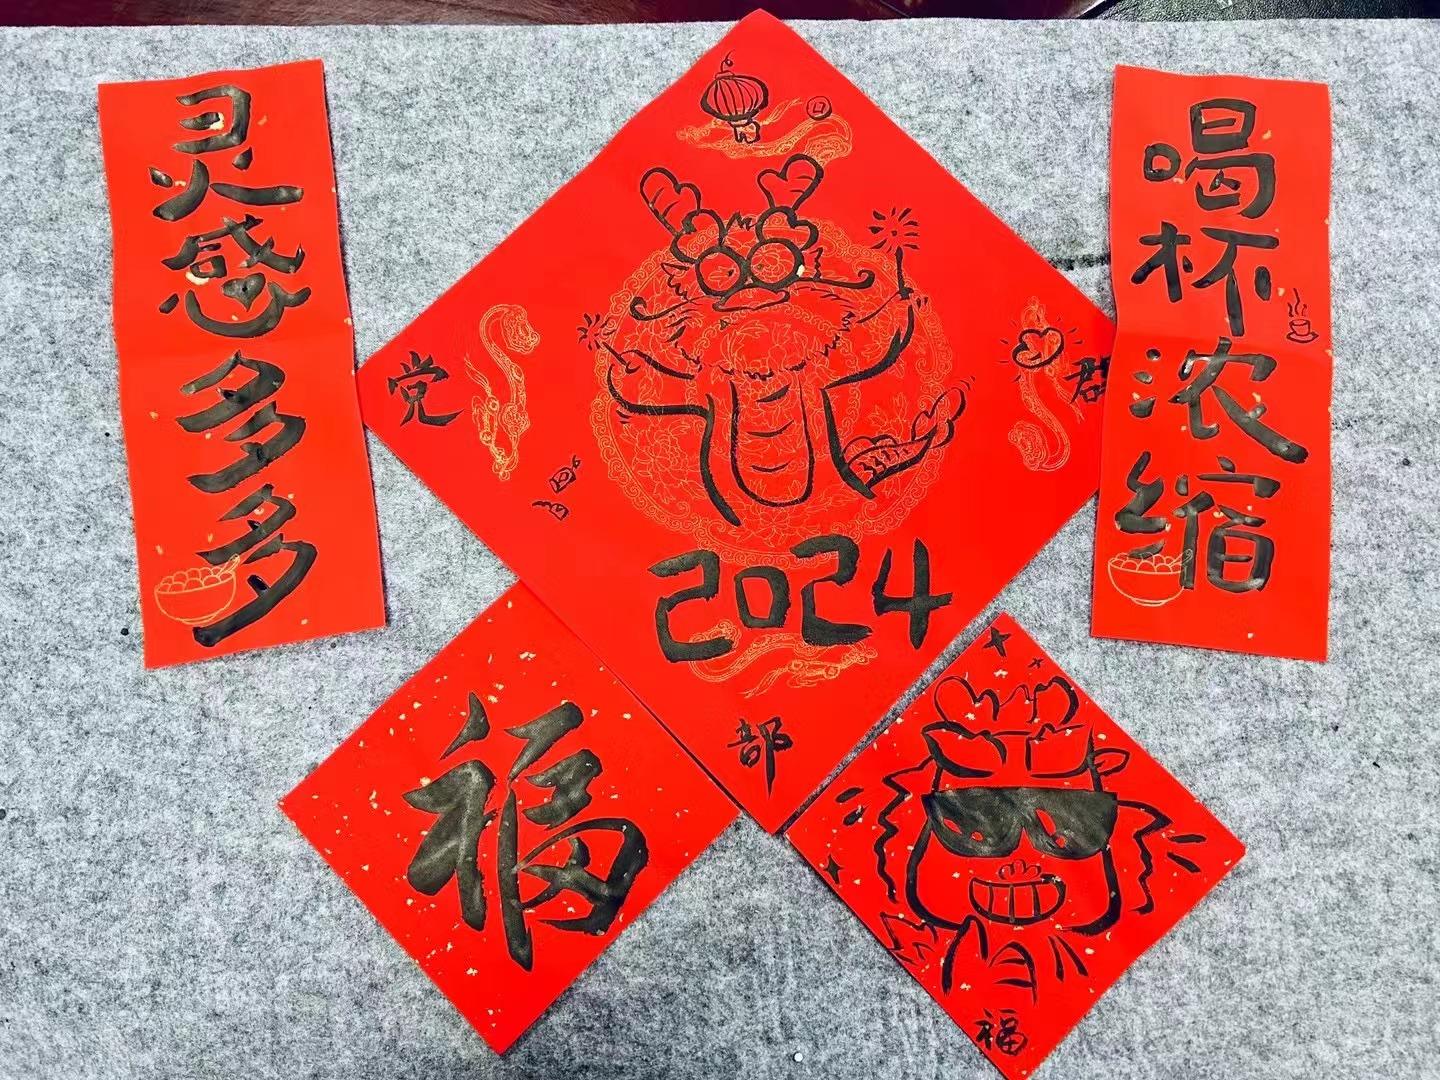 喝杯浓缩
灵感多多
党
群
部
2024
福
福